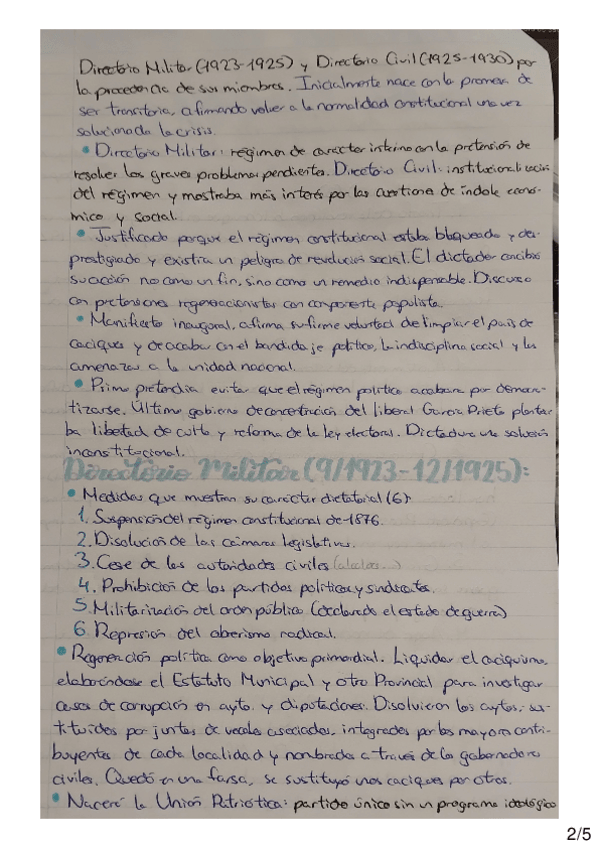 Directorio Militar (1923-1925) y Directorio Civil (1925-1930) por
la procedencia de sus miembros. Inicialmente nace con la promesa de
ser transitoria, afirmando volver a la normalidad constitucional una vez
solucionada la crisis.
• Directorio Militar: régimen de carácter interino con la pretensión de
resolver los graves problemas pendientes. Directorio Civil: institucionalización
del régimen y mostraba más interés por las cuestiones de índole econó-
mico y social.
• Justificado porque el régimen constitucional estaba bloqueado y des-
prestigiado y existía un peligro de revolución social. El dictador concibió
su acción no como un fin, sino como un remedio indispensable. Discurso
con pretensiones regeneracionistas con componente populista.
• Manifiesto inaugural, afirma su firme voluntad de limpiar el país de
caciques y de acabar con el bandidaje político, la indisciplina social y las
amenazas a la unidad nacional.
• Primo pretendía evitar que el régimen político acabara por democra-
tizarse. Último gobierno de concentración del liberal García Prieto plantea-
ba libertad de culto y reforma de la ley electoral. Dictadura una solución
inconstitucional.
Directorio Militar (9/1923-12/1925):
• Medidas que muestran su carácter dictatorial (6):
1. Suspensión del régimen constitucional de 1876.
2. Disolución de las cámaras legislativas.
3. Cese de las autoridades civiles (alcaldes...)
4. Prohibición de los partidos políticos y sindicatos.
5. Militarización del orden público (declarado el estado de guerra)
6. Represión del obrerismo radical.
• Regeneración política como objetivo primordial. Liquidar el caciquismo,
elaborándose el Estatuto Municipal y otro Provincial para investigar
casos de corrupción en ayto. y diputaciones. Disolvieron los aytos, sus-
tituidos por juntas de vocales asociados, integradas por los mayores contri-
buyentes de cada localidad y nombradas a través de los gobernadores
civiles. Quedó en una farsa, se sustituyó unos caciques por otros.
• Nacerá la Unión Patriótica: partido único sin un programa ideológico
2/5